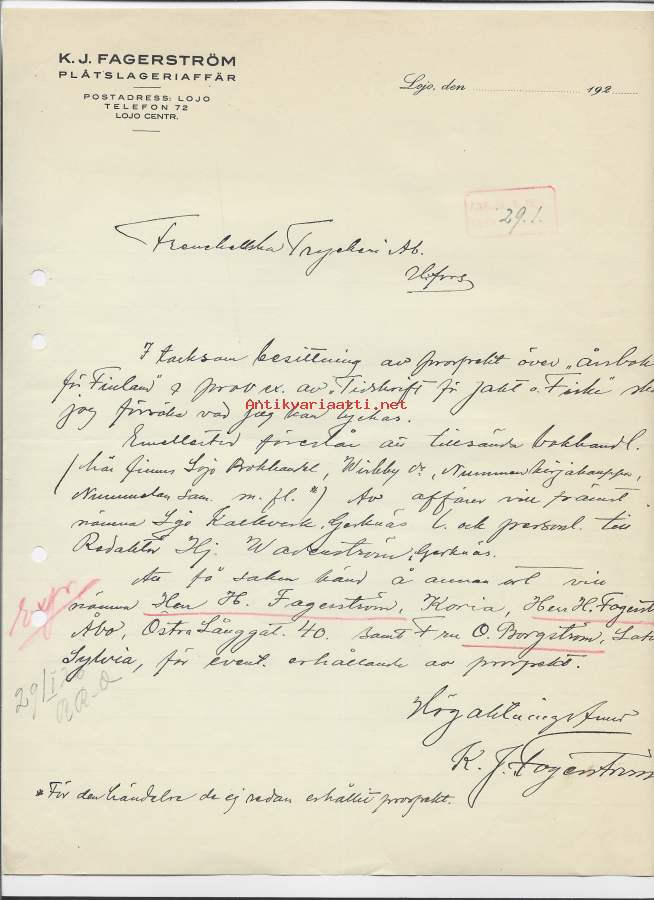 K. J. FAGERSTRÖM
PLÅTSLAGERIAFFÄR
POSTADRESS: LOJO
TELEFON 72
LOJO CENTR.
Lojo, den 192
29.1.
Frenckellska Tryckeri Ab.
H:fors
I tacksam besittning av prospekt över „årsbok
för Finland" & prov ex. av „Tidskrift för jakt o. Fiske"
jag försöka vad jag kan lyckas.
Antikvariaatti.net
Emellertid föreslår att tillsända bokhandl.
(här finnes Lojo Bokhandel, Wirkby d:o, Nummen kirjakauppa,
Nummelan m. fl. *) Av affärer vill främst
nämna Lojo Kalkverk, Gerknäs l. och personl. till
Redaktör Hj. Gerknäs.
Att få saken känd å annan ort vill
nämna Herr H. Fagerström, Koria, Herr H. Fagerst
Åbo, Östra Långgat. 40. samt Fru O. Borgström,
Sylvia, för event. erhållande av prospekt.
29/I
Högaktningsfullt
K. J. Fagerström
* För den händelse de ej redan erhållit prospekt.